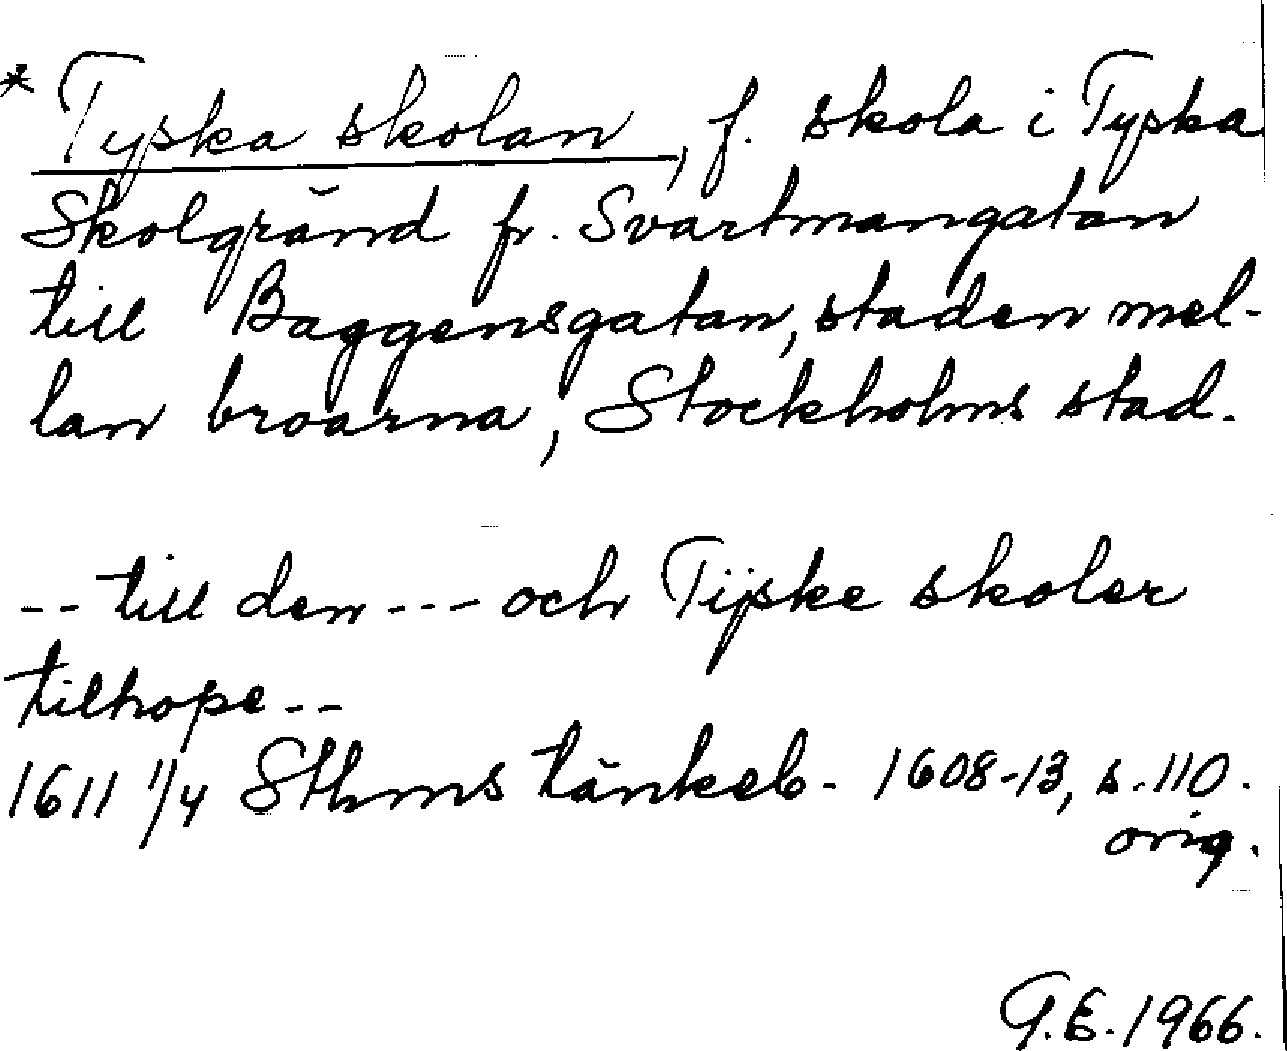 * Tyska skolan, f. skola i Tyska
Skolgränd fr. Svartmangatan
till Baggensgatan, staden mel-
lan broarna, Stockholms stad.
-- till den --- och Tijske skoler
tilhope --
1611 11/4 Sthms tänkeb. 1608-13, s. 110.
orig.
G.E. 1966.